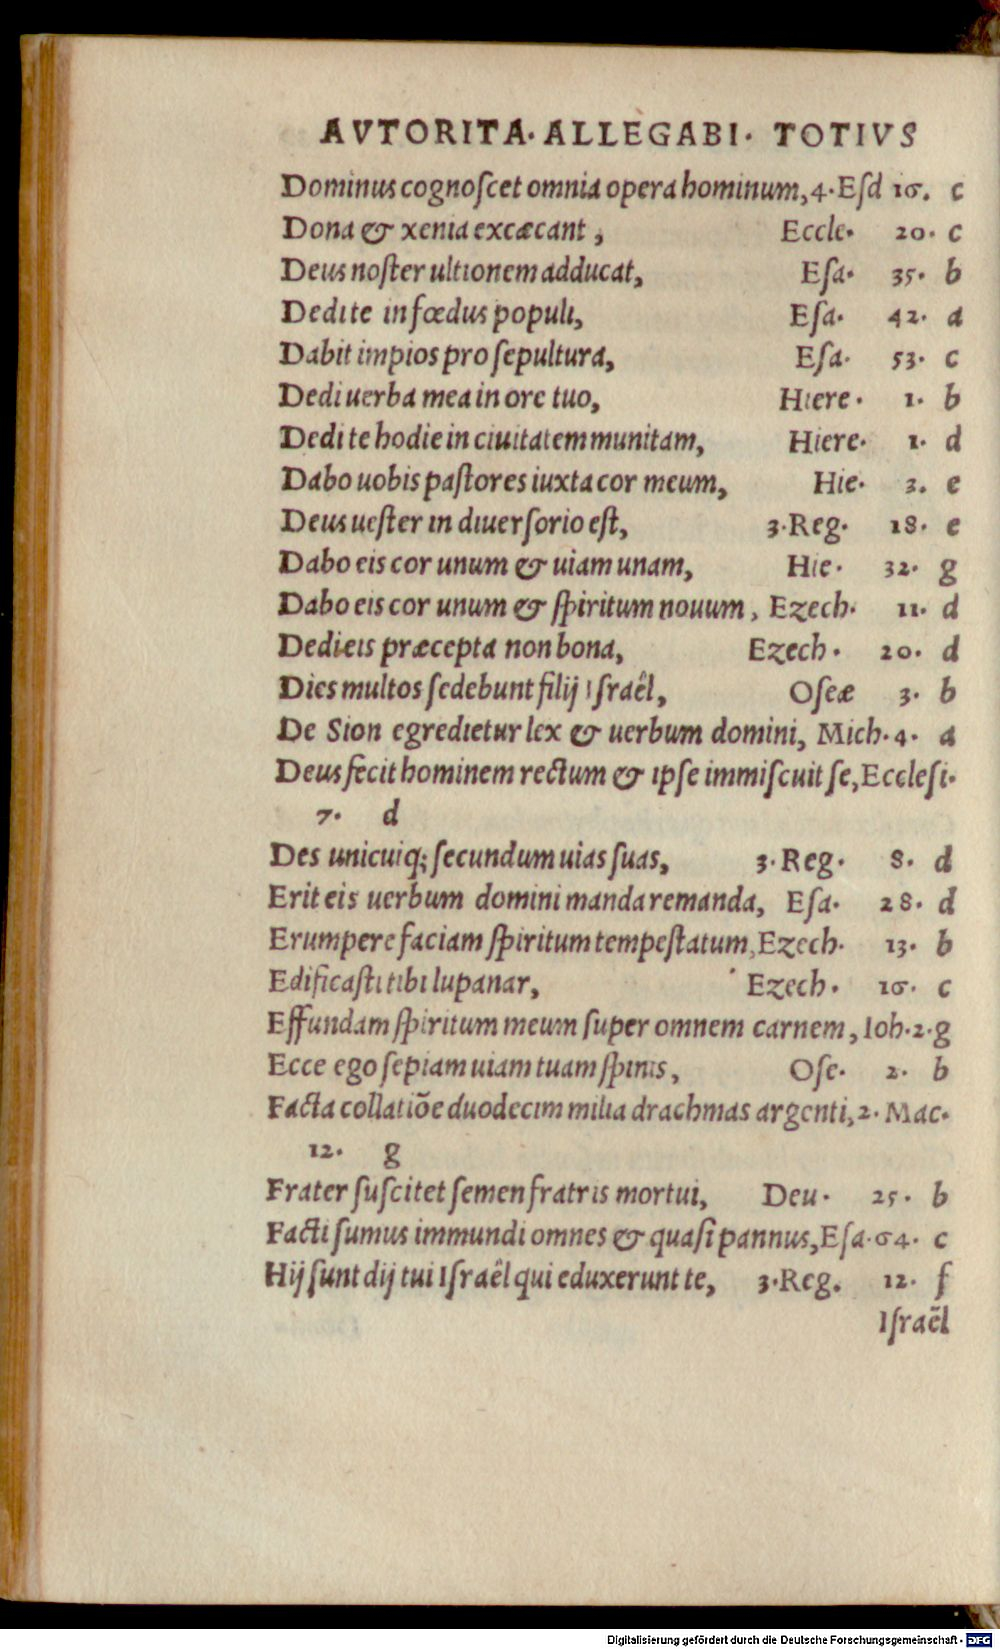 AVTORITA· ALLEGABI· TOTIVS
Dominus cognoſcet omnia opera hominum, 4·Eſd 16. c
Dona & xenia excæcant, Eccle· 20· c
Deus noſter ultionem adducat, Eſa· 35· b
Dedi te in fœdus populi, Eſa· 42· a
Dabit impios pro ſepultura, Eſa· 53· c
Dedi uerba mea in ore tuo, Hiere· 1· b
Dedi te hodie in ciuitatem munitam, Hiere· 1· d
Dabo uobis paſtores iuxta cor meum, Hie· 3. e
Deus ueſter in diuerſorio eſt, 3·Reg· 18· e
Dabo eis cor unum & uiam unam, Hie· 32· g
Dabo eis cor unum & ſpiritum nouum, Ezech· 11· d
Dedi eis præcepta non bona, Ezech· 20· d
Dies multos ſedebunt filij Iſraêl, Oſeæ 3· b
De Sion egredietur lex & uerbum domini, Mich·4· a
Deus fecit hominem rectum & ipſe immiſcuit ſe, Eccleſi·
7· d
Des unicuiq; ſecundum uias ſuas, 3·Reg· 8· d
Erit eis uerbum domini manda remanda, Eſa· 28· d
Erumpere faciam ſpiritum tempeſtatum, Ezech· 13· b
Edificaſti tibi lupanar, Ezech· 16· c
Effundam ſpiritum meum ſuper omnem carnem, Ioh·2·g
Ecce ego ſepiam uiam tuam ſpinis, Oſe· 2· b
Facta collatiõe duodecim milia drachmas argenti, 2· Mac·
12· g
Frater ſuſcitet ſemen fratris mortui, Deu· 25· b
Facti ſumus immundi omnes & quaſi pannus, Eſa·64· c
Hij ſunt dij tui Iſraêl qui eduxerunt te, 3·Reg. 12· f
Iſraẽl
Digitalisierung gefördert durch die Deutsche Forschungsgemeinschaft - DFG